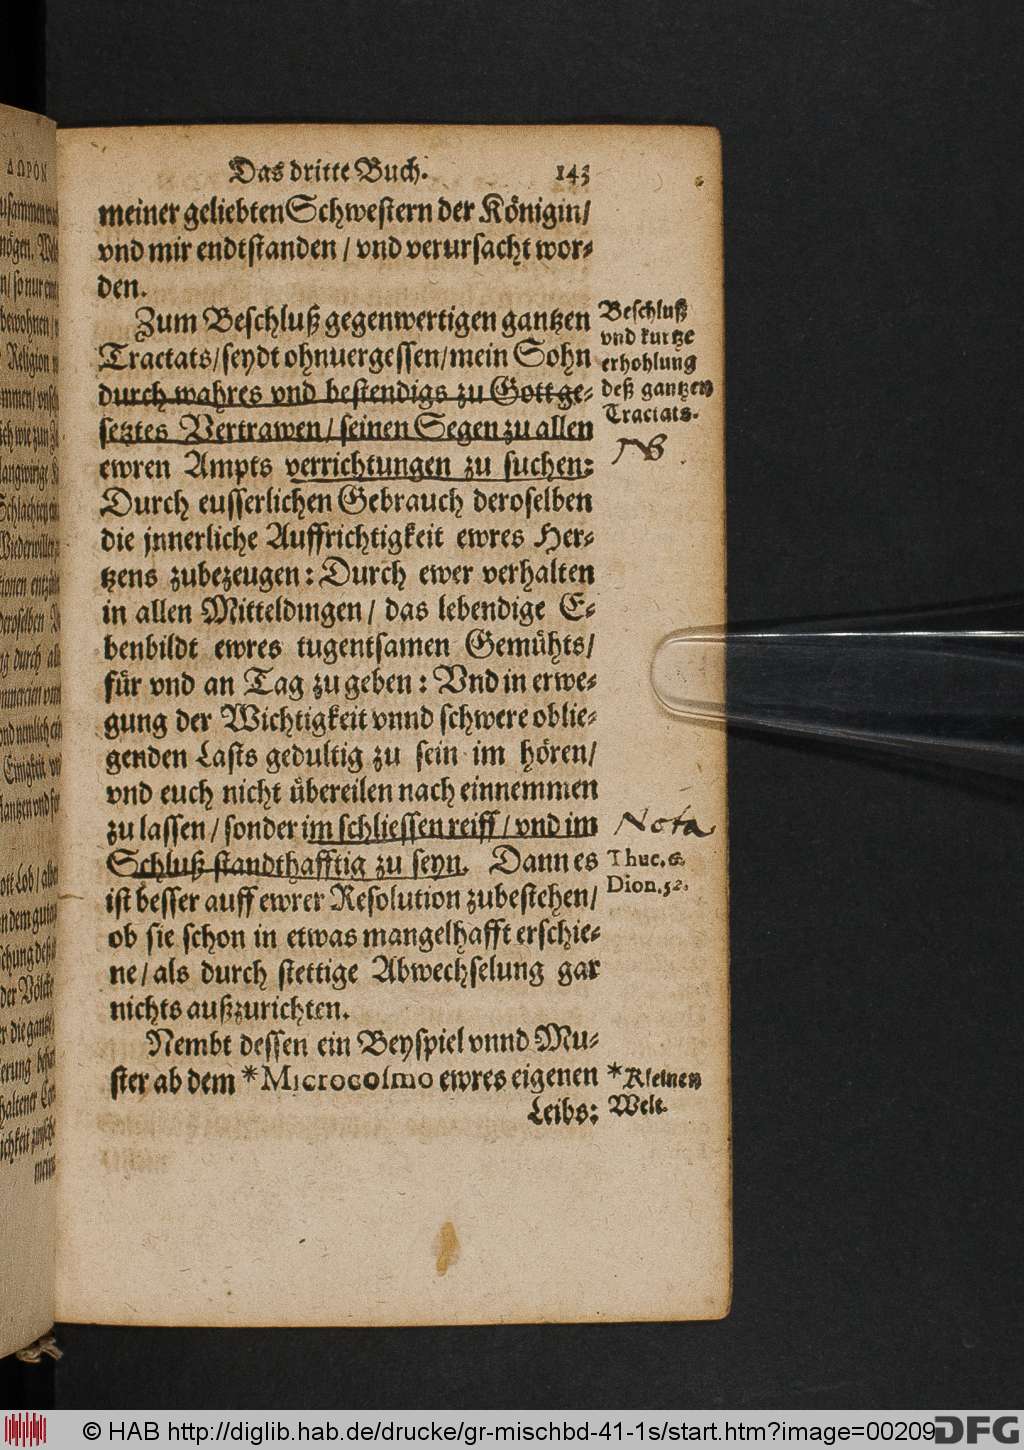 Das dritte Buch. 143
meiner geliebten Schwestern der Königin/
vnd mir endtstanden / vnd verursacht wor-
den.
Zum Beschluß gegenwertigen gantzen
Tractats/seydt ohnuergessen/mein Sohn
durch wahres vnd bestendigs zu Gott ge-
setztes Vertrawen/ seinen Segen zu allen
ewren Ampts verrichtungen zu suchen:
Durch eusserlichen Gebrauch deroselben
die jnnerliche Auffrichtigkeit ewres Her-
tzens zubezeugen: Durch ewer verhalten
in allen Mitteldingen / das lebendige E-
benbildt ewres tugentsamen Gemühts/
für vnd an Tag zu geben: Vnd in erwe-
gung der Wichtigkeit vnnd schwere oblie-
genden Lasts gedultig zu sein im hören/
vnd euch nicht übereilen nach einnemmen
zu lassen / sonder im schliessen reiff / vnd im
Schluß standthafftig zu seyn. Dann es
ist besser auff ewrer Resolution zubestehen/
ob sie schon in etwas mangelhafft erschie-
ne / als durch stettige Abwechselung gar
nichts außzurichten.
Nembt dessen ein Beyspiel vnnd Mu-
ster ab dem *Microcosmo ewres eigenen
Leibs:
Beschluß
vnd kurtze
erhohlung
deß gantzen
Tractats.
NB
Nota
Thuc. 6.
Dion. 52.
*Kleinen
Welt.
ΔΩΡΟΝ
© HAB http://diglib.hab.de/drucke/gr-mischbd-41-1s/start.htm?image=00209
DFG